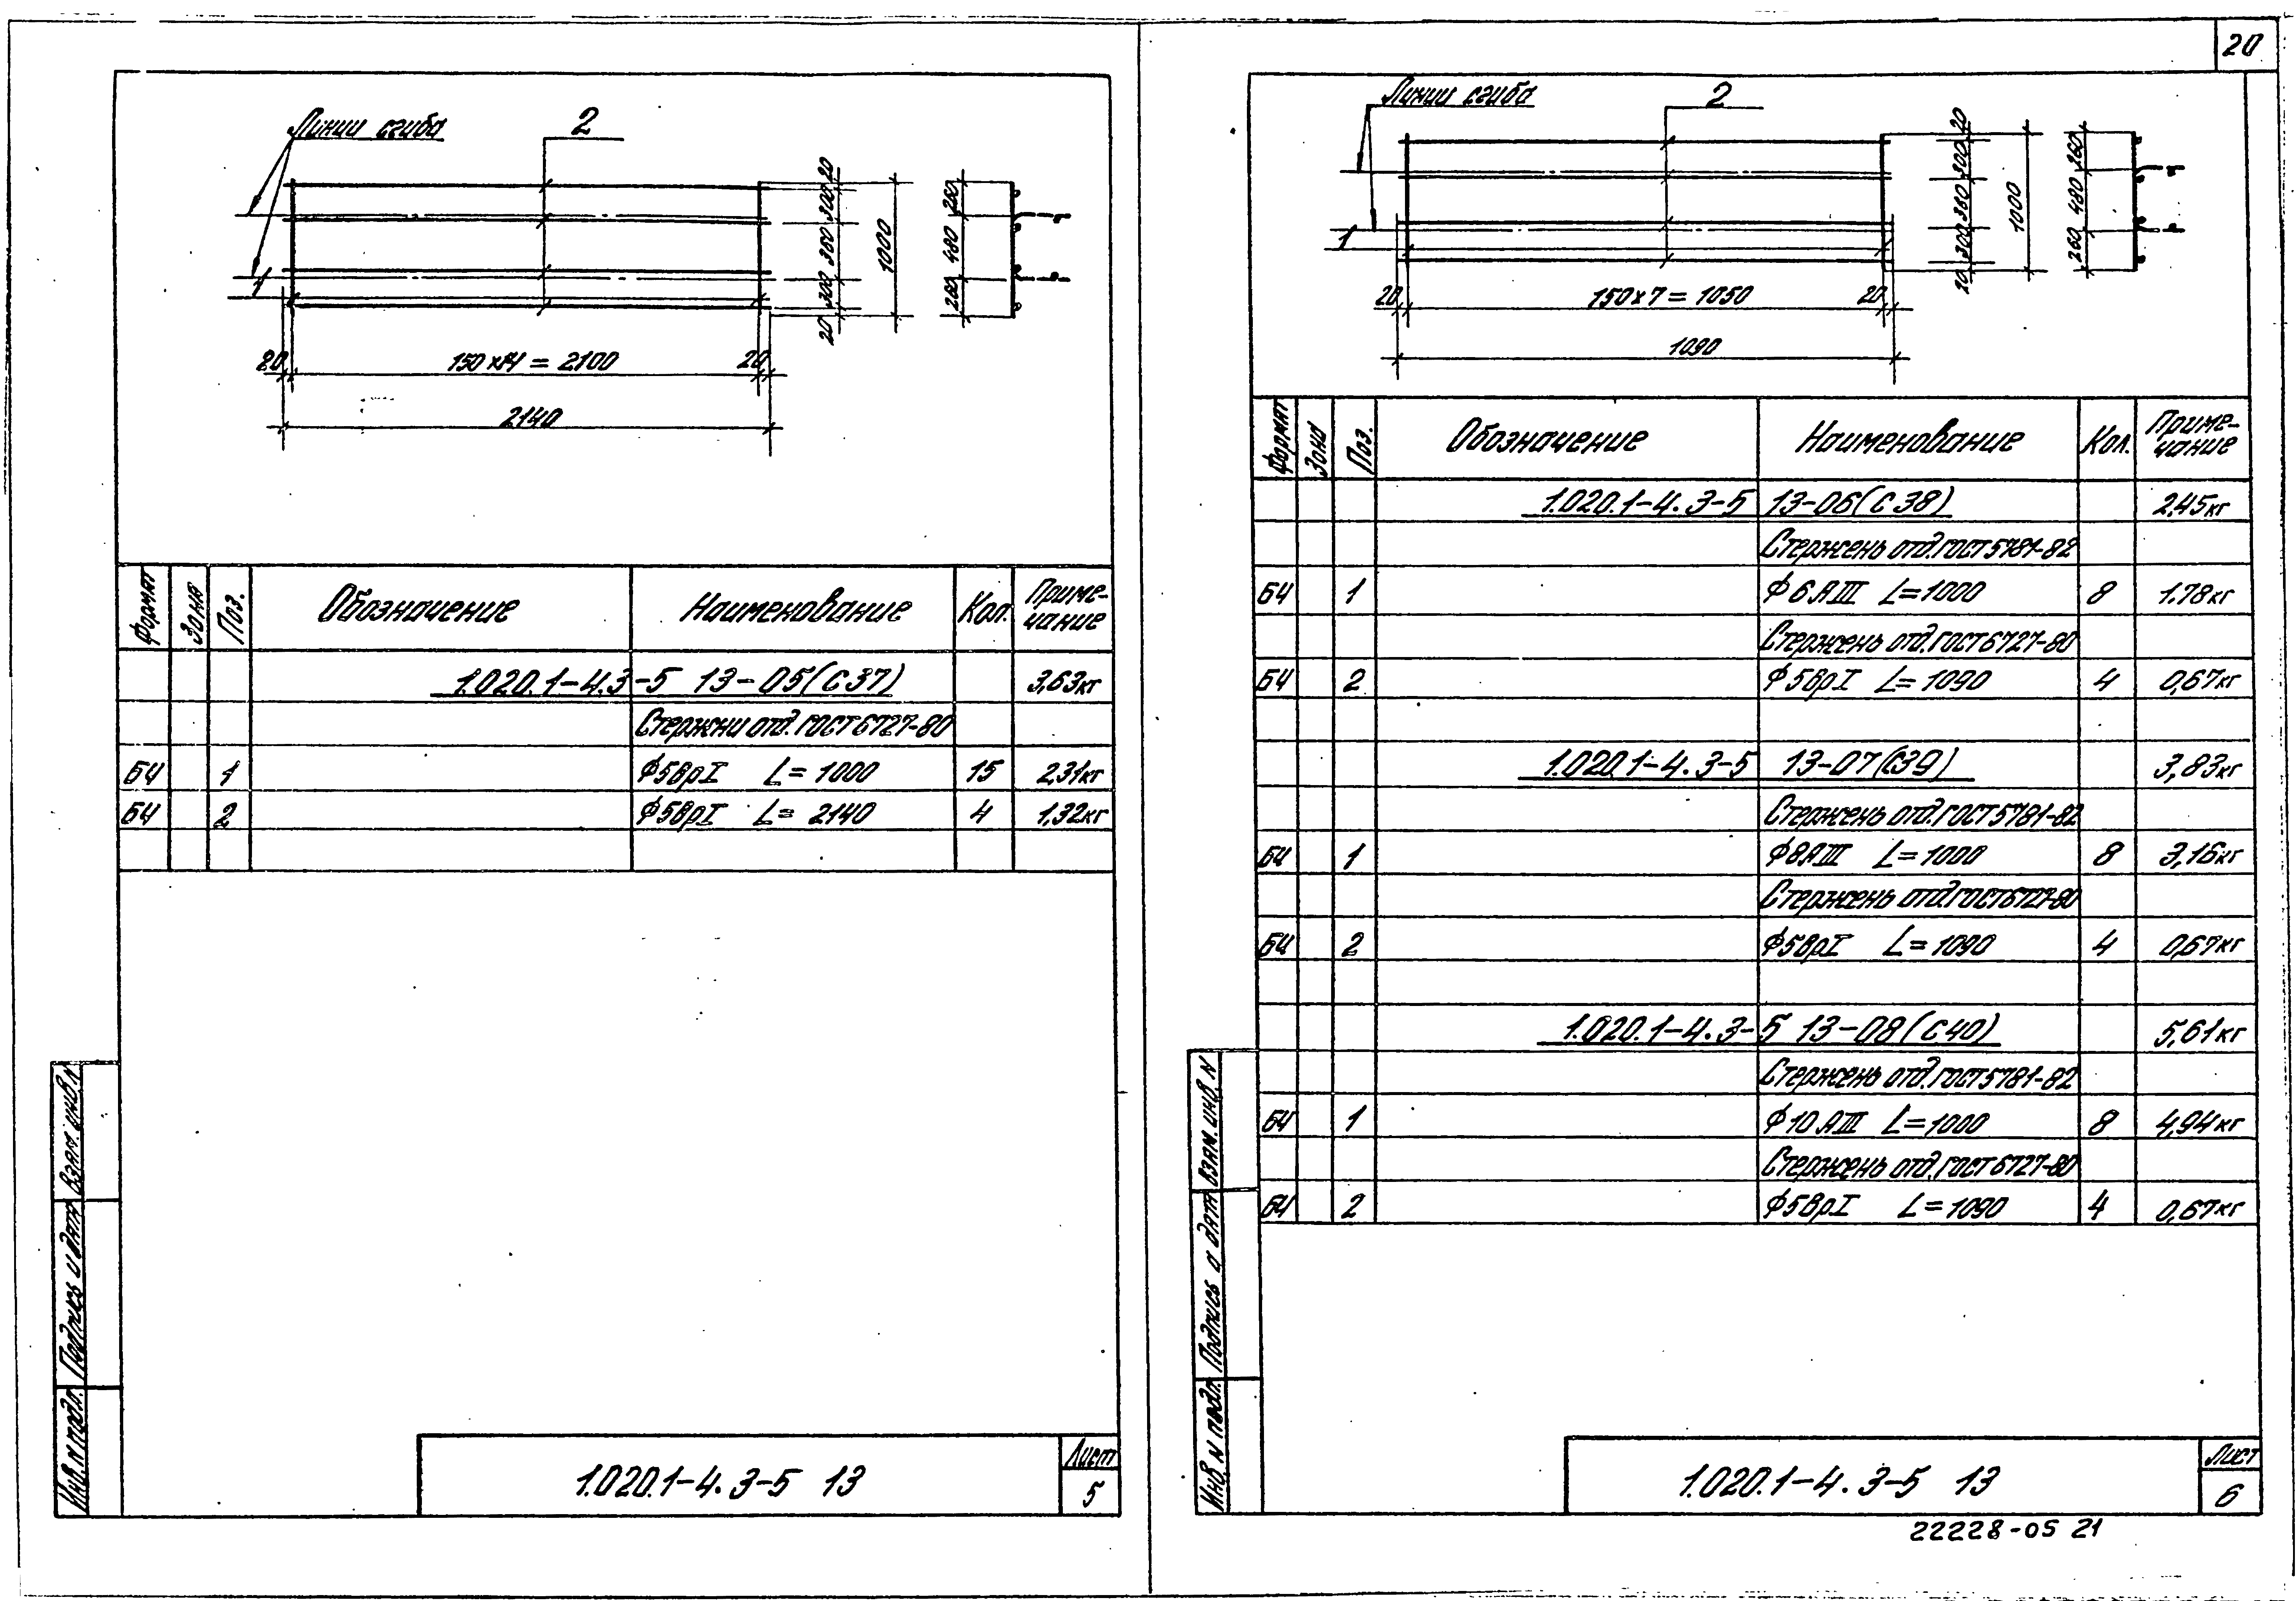 20
Линии сгиба
2
1
20
300
360
300
20
1000
260
480
260
20
150 х14 = 2100
20
2140
Формат Зона Поз. Обозначение Наименование Кол. Приме-
чание
1.020.1-4.3-5 13-05(С37) 3,63кг
Стержни отд. ГОСТ 6727-80
БЧ 1 Ф5ВрI L= 1000 15 2,31кг
БЧ 2 Ф5ВрI L= 2140 4 1,32кг
Взам. инв. N
Подпись и дата
Инв. N подл.
1.020.1-4.3-5 13
Лист
5
Линии сгиба
2
1
20
300
360
300
20
1000
260
480
260
20
150х7 = 1050
20
1090
Формат Зона Поз. Обозначение Наименование Кол. Приме-
чание
1.020.1-4.3-5 13-06(С38) 2,45кг
Стержень отд. ГОСТ 5781-82
БЧ 1 Ф6АIII L=1000 8 1.78кг
Стержень отд. ГОСТ 6727-80
БЧ 2 Ф5ВрI L= 1090 4 0,67кг
1.020.1-4.3-5 13-07(С39) 3,83кг
Стержень отд. ГОСТ 5781-82
БЧ 1 Ф8АIII L=1000 8 3,16кг
Стержень отд. ГОСТ 6727-80
БЧ 2 Ф5ВрI L=1090 4 0,67кг
1.020.1-4.3-5 13-08(С40) 5,61кг
Стержень отд. ГОСТ 5781-82
БЧ 1 Ф10АIII L=1000 8 4,94кг
Стержень отд. ГОСТ 6727-80
БЧ 2 Ф5ВрI L=1090 4 0,67кг
Взам. инв. N
Подпись и дата
Инв. N подл.
1.020.1-4.3-5 13
Лист
6
22228-05 21